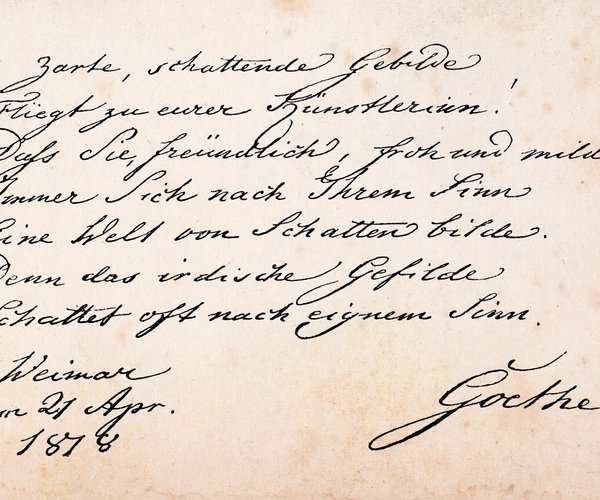 Zarte, schattende Gebilde
Fliegt zu eurer Künstlerinn!
Daſs Sie, freündlich, froh und mild
Immer Sich nach Ihrem Sinn
Eine Welt von Schatten bilde.
Denn das irdische Gefilde
Schattet oft nach eignem Sinn.
Weimar
21 Apr.
1818
Goethe